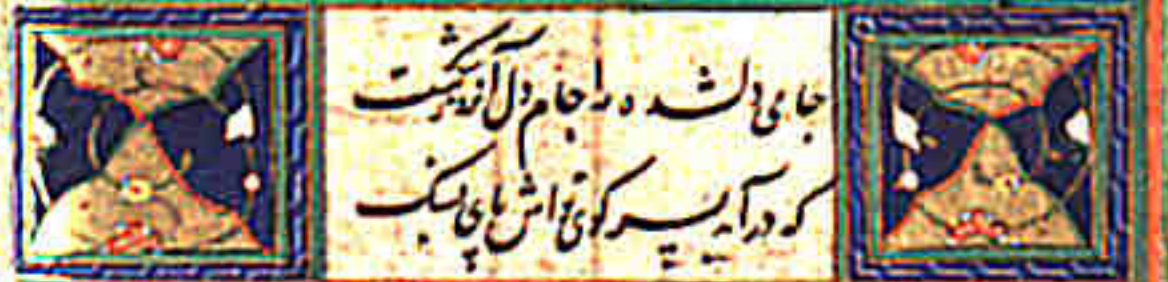 جامی دلشده را جام دل آنروز شکست
که درآمد بسر کوی تواش پای بسنگ